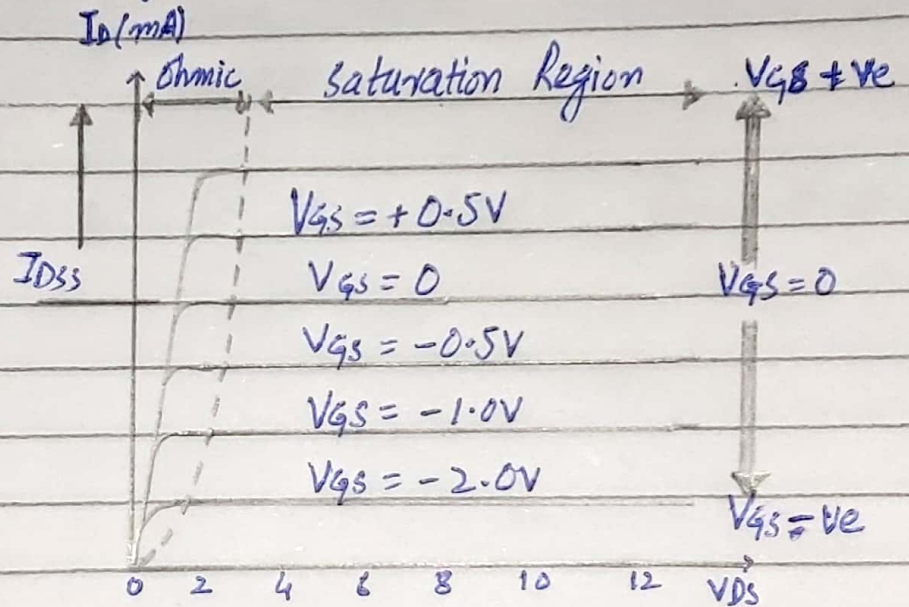 ID (mA)
Ohmic
Saturation Region
VGS +ve
VGS = +0.5V
IDSS
VGS = 0
VGS = 0
VGS = -0.5V
VGS = -1.0V
VGS = -2.0V
VGS = ve
0 2 4 6 8 10 12 VDS